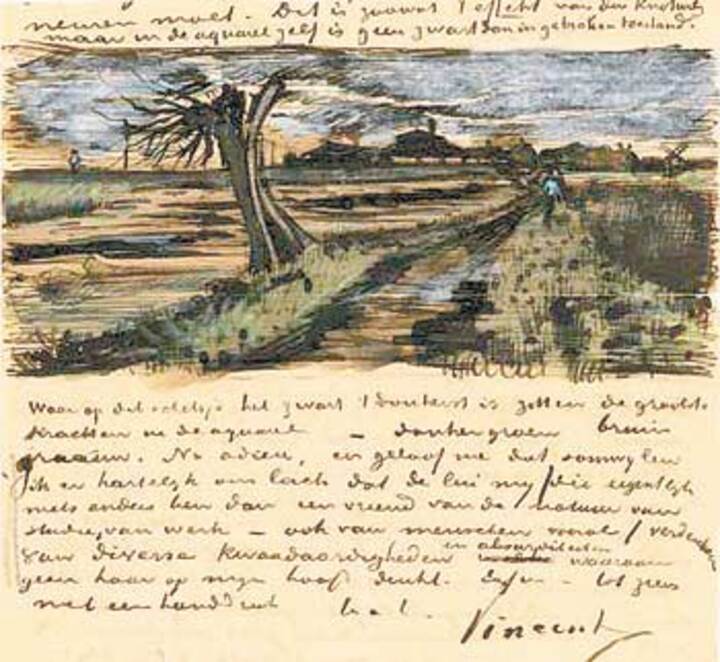 neuren moet. Dat is zoowat 't effekt van den knotwilg
maar in de aquarel zelf is geen zwart dan in gebroken toestand.
Waar op dit schetsje het zwart 't donkerst is zitten de grootste
krachten in de aquarel – donkergroen bruin
graauw. Nu adieu, en geloof me dat somwylen
ik er hartelyk om lach dat de lui my (die eigentlyk
niets anders ben dan een vriend van de natuur van
studie, van werk – ook van menschen vooral) verdenken
van diverse kwaadaardigheden en absurditeiten waaraan
geen haar op myn hoofd denkt. Enfin – tot ziens
met een handdruk
Vincent